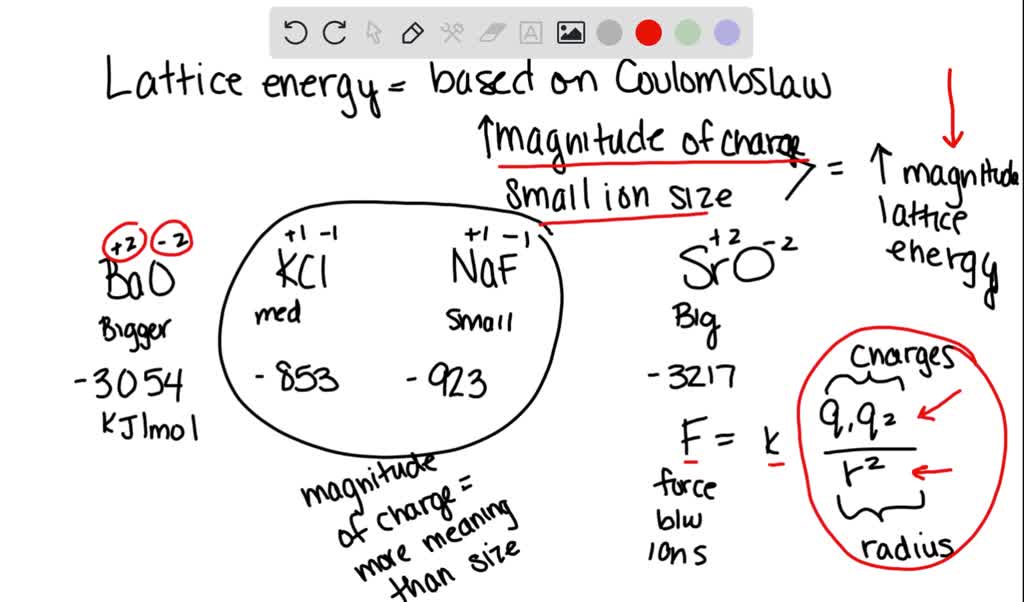 Lattice energy = based on Coulombslaw
↑magnitude of charge
small ion size
= ↑ magnitude
lattice
energy
+2 -2
BaO
Bigger
-3054
KJ/mol
+1 -1
KCl
med
-853
+1 -1
NaF
Small
-923
+2 -2
SrO
Big
-3217
magnitude
of charge =
more meaning
than size
F = k q₁q₂
r²
charges
radius
force
b/w
ions
A